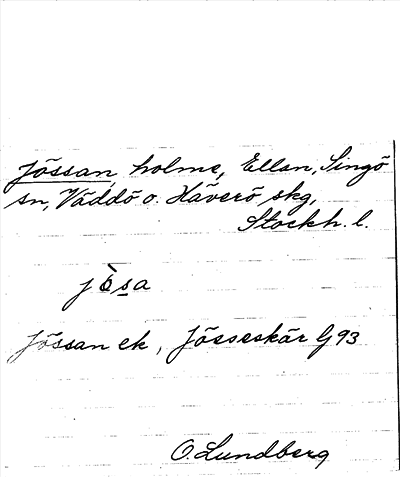 Jössan, holme, Ellan, Singö
sn, Väddö o. Häverö skg,
Stockh. l.
jösa
Jössan ek, Jösseskär G 93
O. Lundberg